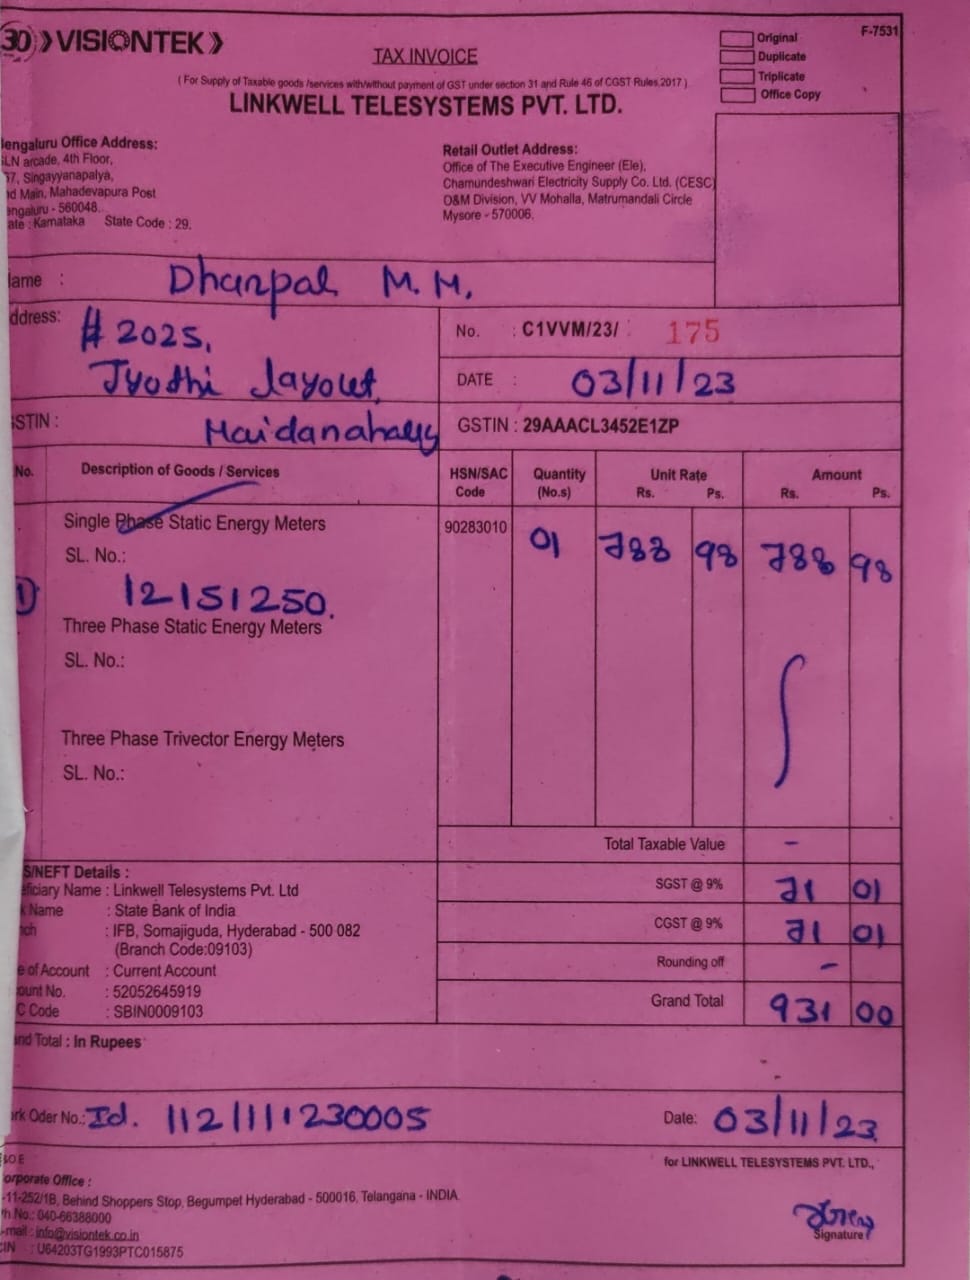 30 VISIONTEK
TAX INVOICE
Original
Duplicate
Triplicate
Office Copy
F-7531
( For Supply of Taxable goods /services with/without payment of GST under section 31 and Rule 46 of CGST Rules,2017 )
LINKWELL TELESYSTEMS PVT. LTD.
engaluru Office Address:
LN arcade, 4th Floor,
7, Singayyanapalya,
d Main, Mahadevapura Post
engaluru - 560048.
ate : Karnataka State Code : 29.
Retail Outlet Address:
Office of The Executive Engineer (Ele),
Chamundeshwari Electricity Supply Co. Ltd. (CESC)
O&M Division, VV Mohalla, Matrumandali Circle
Mysore - 570006.
ame : Dhanpal M.M.
ddress: # 2025,
Jyothi Layout,
Maidanahally
No. : C1VVM/23/ 175
DATE : 03/11/23
STIN :
GSTIN : 29AAACL3452E1ZP
No. Description of Goods / Services HSN/SAC Code Quantity (No.s) Unit Rate Rs. Ps. Amount Rs. Ps.
Single Phase Static Energy Meters 90283010 01 788 98 788 98
SL. No.:
1) 12151250.
Three Phase Static Energy Meters
SL. No.:
Three Phase Trivector Energy Meters
SL. No.:
Total Taxable Value -
SGST @ 9% 71 01
CGST @ 9% 71 01
Rounding off -
Grand Total 931 00
S/NEFT Details :
eficiary Name : Linkwell Telesystems Pvt. Ltd
k Name : State Bank of India
nch : IFB, Somajiguda, Hyderabad - 500 082
(Branch Code:09103)
e of Account : Current Account
ount No. : 52052645919
C Code : SBIN0009103
nd Total : In Rupees
rk Oder No.: Id. 112/111230005
Date: 03/11/23
for LINKWELL TELESYSTEMS PVT. LTD.,
&O E
orporate Office :
-11-252/1B, Behind Shoppers Stop, Begumpet Hyderabad - 500016, Telangana - INDIA.
h.No.: 040-66388000
-mail : info@visiontek.co.in
IN : U64203TG1993PTC015875
Signature